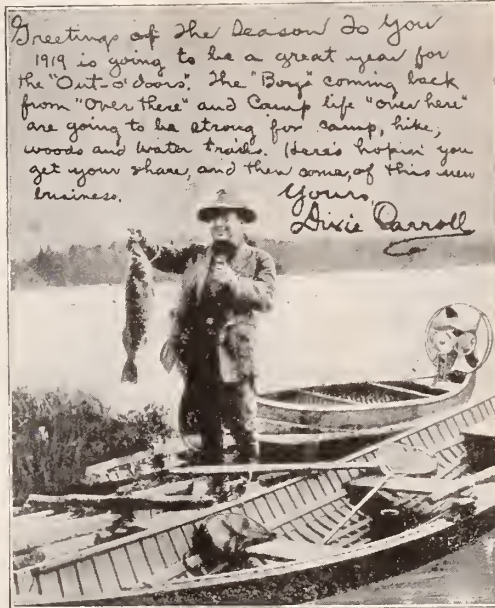 Greetings of the Season to You
1919 is going to be a great year for
the "Out-o'doors". The "Boys" coming back
from "over there" and Camp life "over here"
are going to be strong for camp, hike,
woods and water trails. Here's hopin' you
get your share, and then some, of this new
business.
Yours,
Dixie Carroll